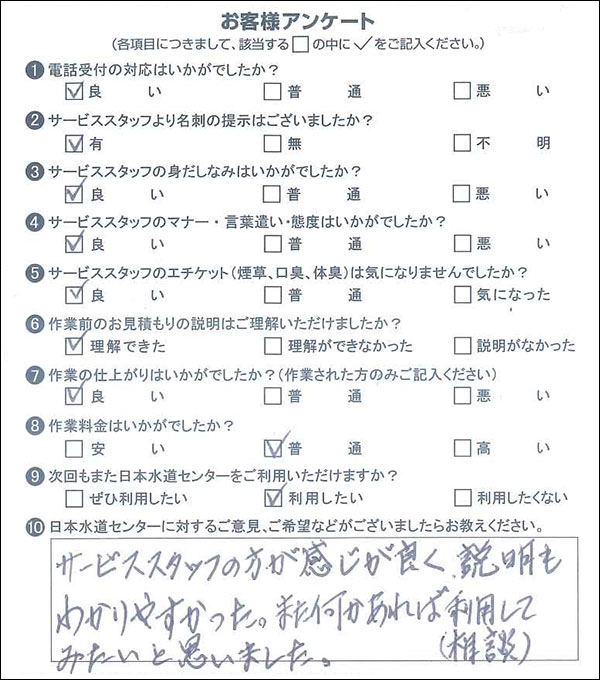 お客様アンケート
(各項目につきまして、該当する□の中に✓をご記入ください。)
❶ 電話受付の対応はいかがでしたか？
☑ 良い □ 普通 □ 悪い
❷ サービススタッフより名刺の提示はございましたか？
☑ 有 □ 無 □ 不明
❸ サービススタッフの身だしなみはいかがでしたか？
☑ 良い □ 普通 □ 悪い
❹ サービススタッフのマナー・言葉遣い・態度はいかがでしたか？
☑ 良い □ 普通 □ 悪い
❺ サービススタッフのエチケット(煙草、口臭、体臭)は気になりませんでしたか？
☑ 良い □ 普通 □ 気になった
❻ 作業前のお見積もりの説明はご理解いただけましたか？
☑ 理解できた □ 理解ができなかった □ 説明がなかった
❼ 作業の仕上がりはいかがでしたか？(作業された方のみご記入ください)
☑ 良い □ 普通 □ 悪い
❽ 作業料金はいかがでしたか？
□ 安い ☑ 普通 □ 高い
❾ 次回もまた日本水道センターをご利用いただけますか？
□ ぜひ利用したい ☑ 利用したい □ 利用したくない
❿ 日本水道センターに対するご意見、ご希望などがございましたらお教えください。
サービススタッフの方が感じが良く、説明も
わかりやすかった。また何かあれば利用して
みたいと思いました。 (相談)